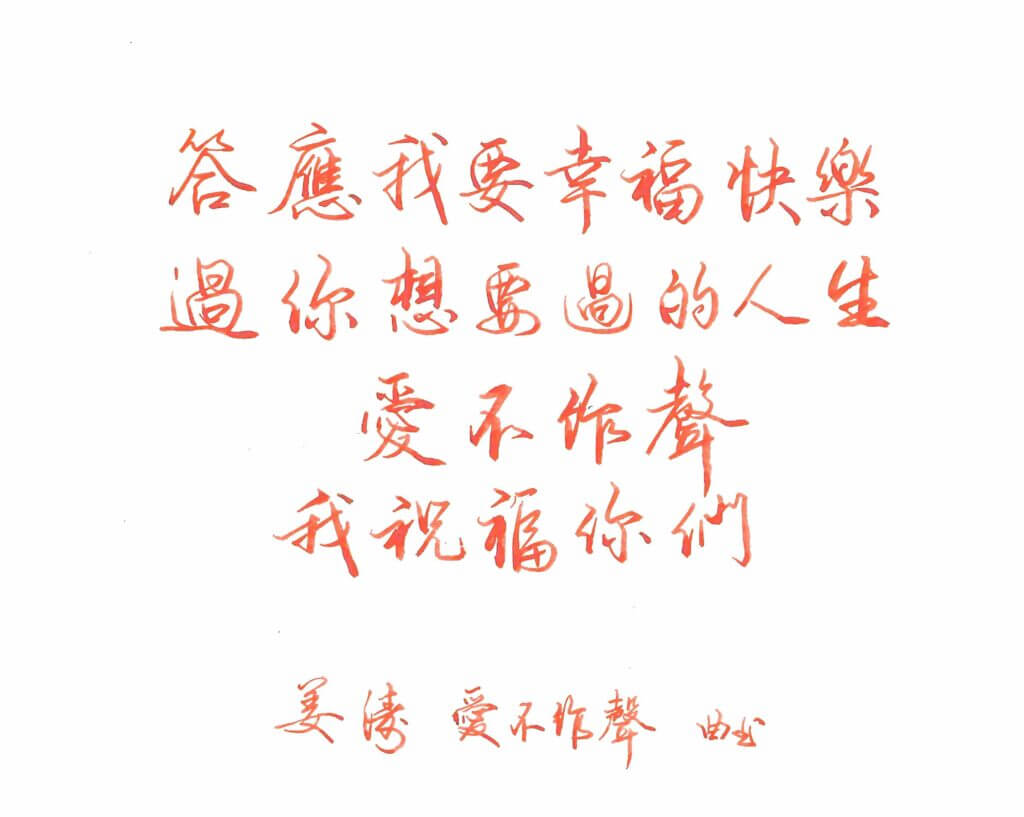 答應我要幸福快樂
過你想要過的人生
愛不作聲
我祝福你們
姜濤 愛不作聲